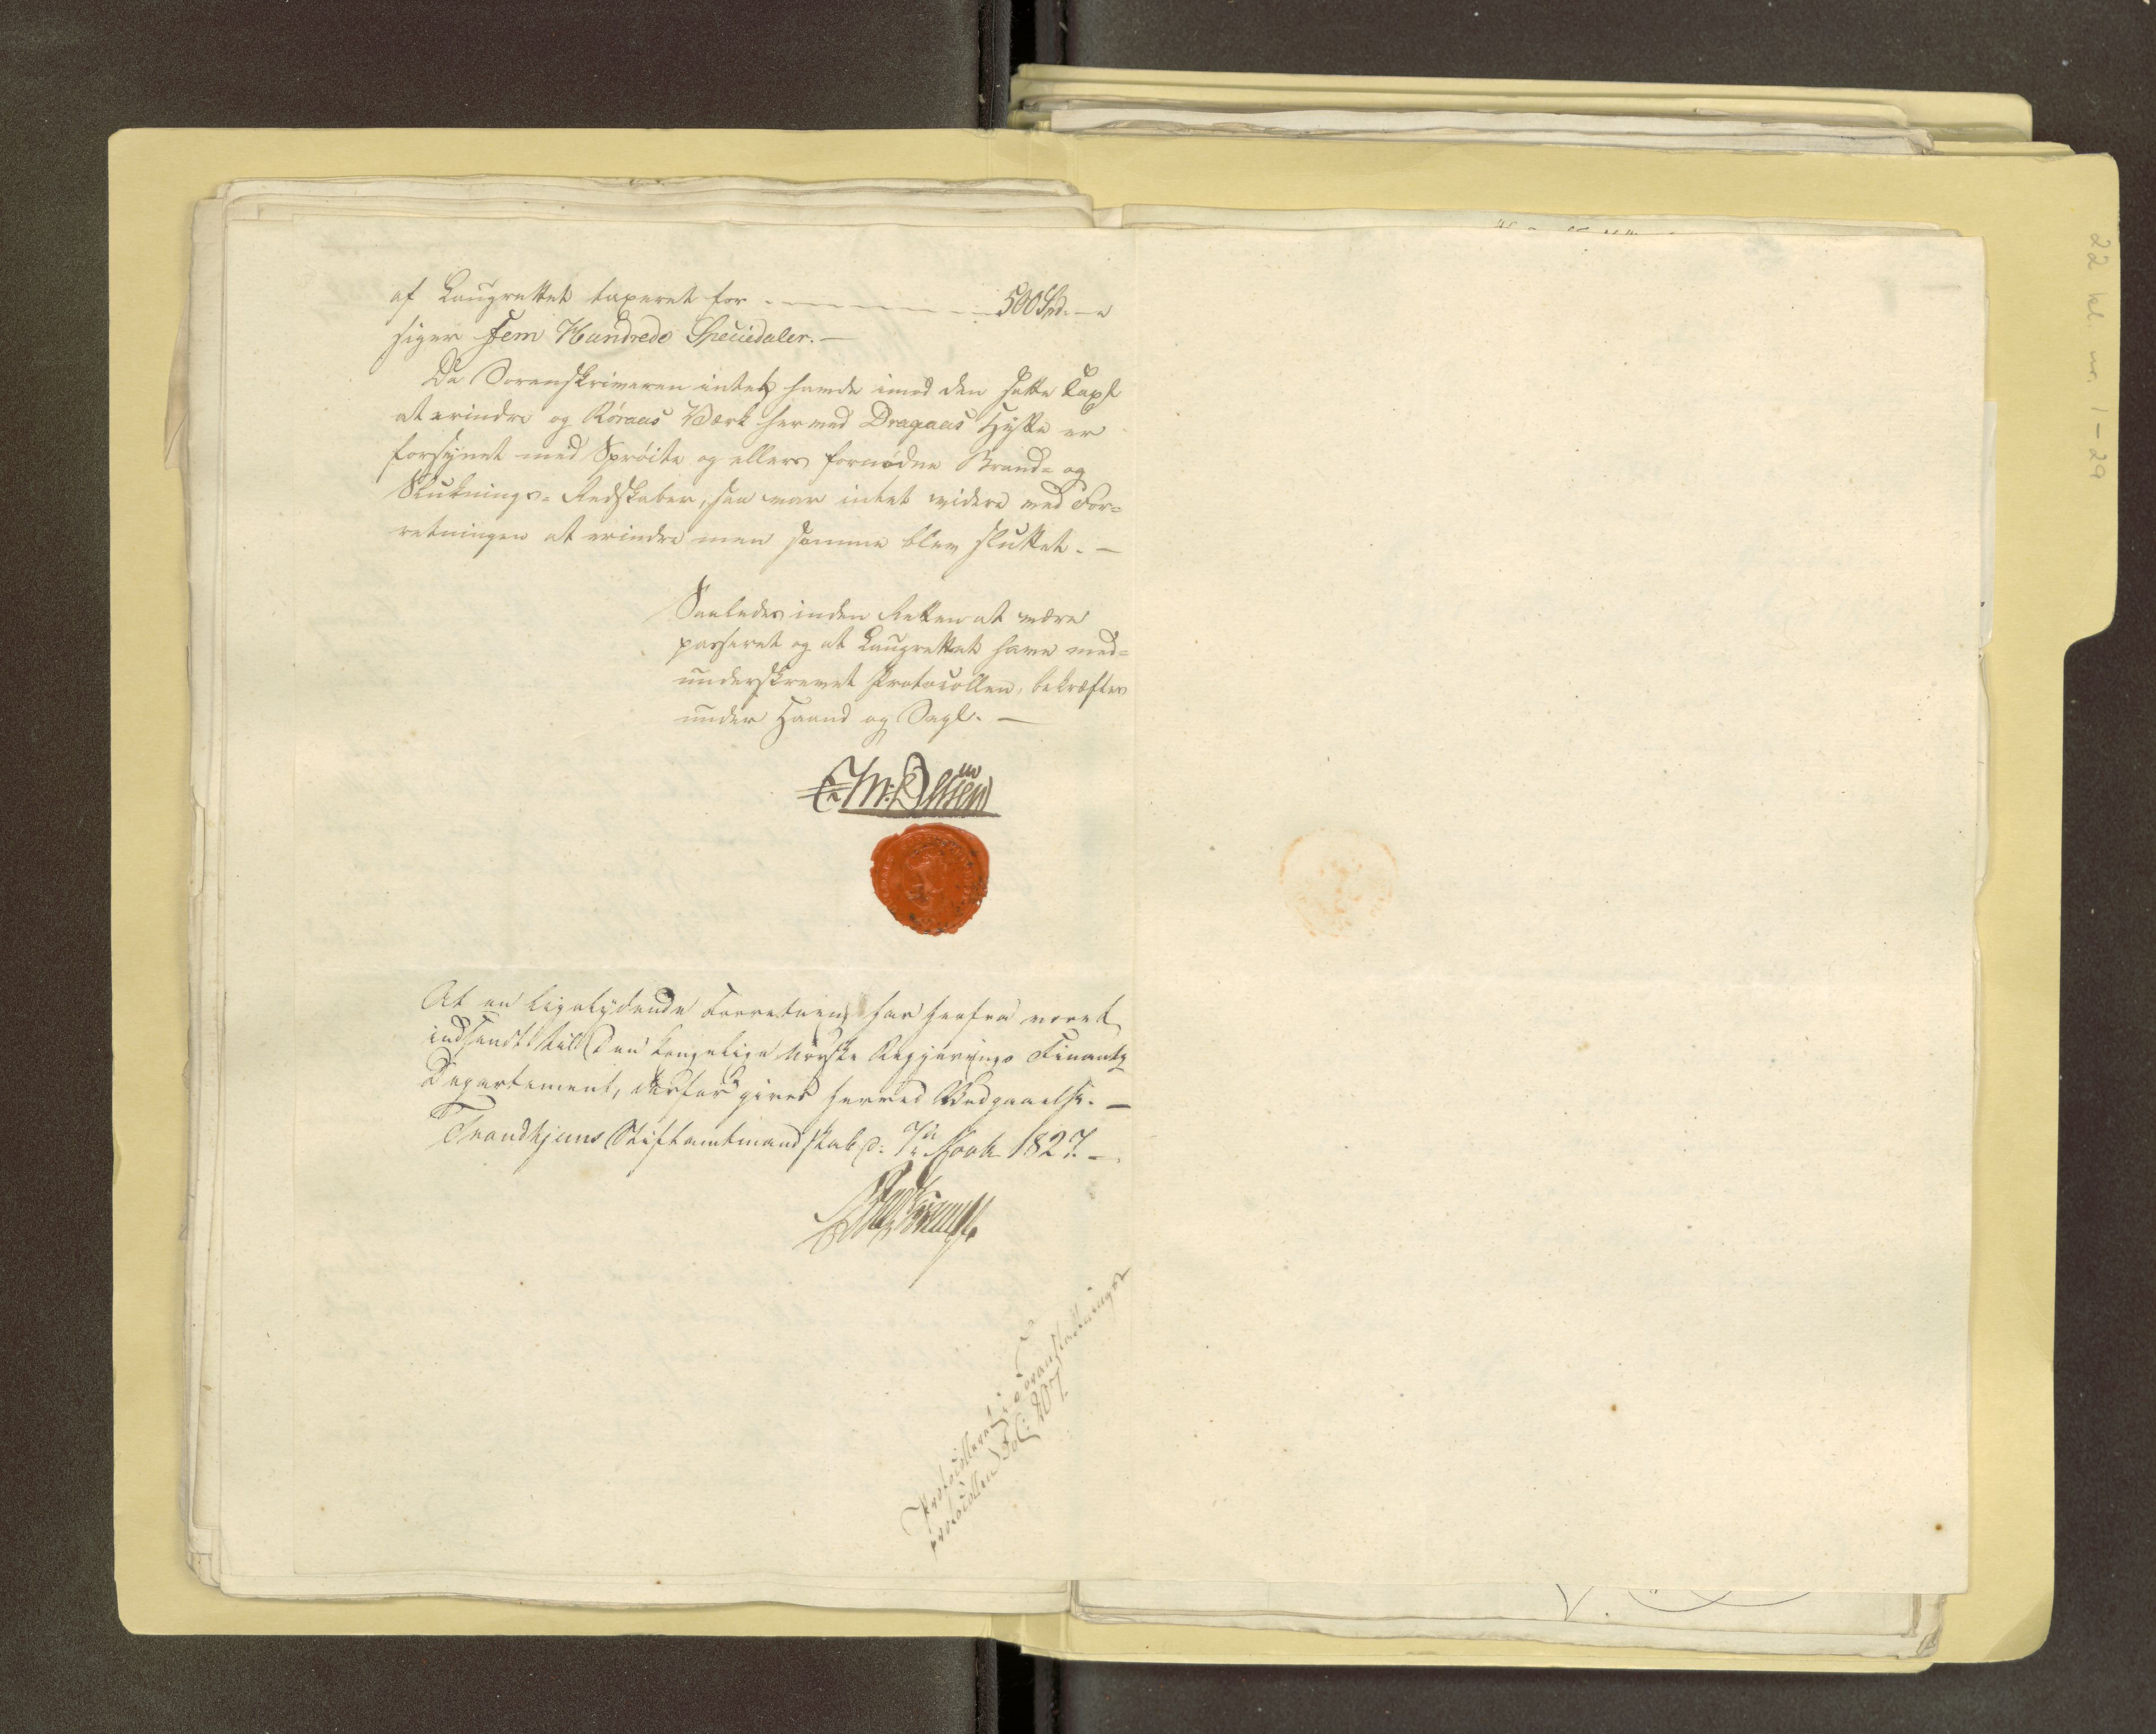 af Laugrettet taxeret for - - - - - 500 Spd. -
siger Fem Hundrede Speciedaler. -
Da Sorenskriveren intet havde imod den satte Taxt
at erindre og Röraas Værk hermed Dragaas Hytte er
forsynet med Spröite og ellers fornødne Brand- og
Sluknings-Redskaber, saa var intet videre ved For-
retningen at erindre men samme blev sluttet. -
Saaledes inden Retten at være
passeret og at Laugrettet have med-
underskrevet Protocollen, bekræftes
under Haand og Segl. -
At en ligelydende Forretning har herfra været
indsendt till Den kongelige norske Regjerings Finants
Departement, derfor gives herved Vedgaaelse. -
Trondhjems Stiftamtmandskab d: 1827. -
Protocolleret i Foranstaltnings
protocollen Fol: 207.
22 kl. nr. 1-29